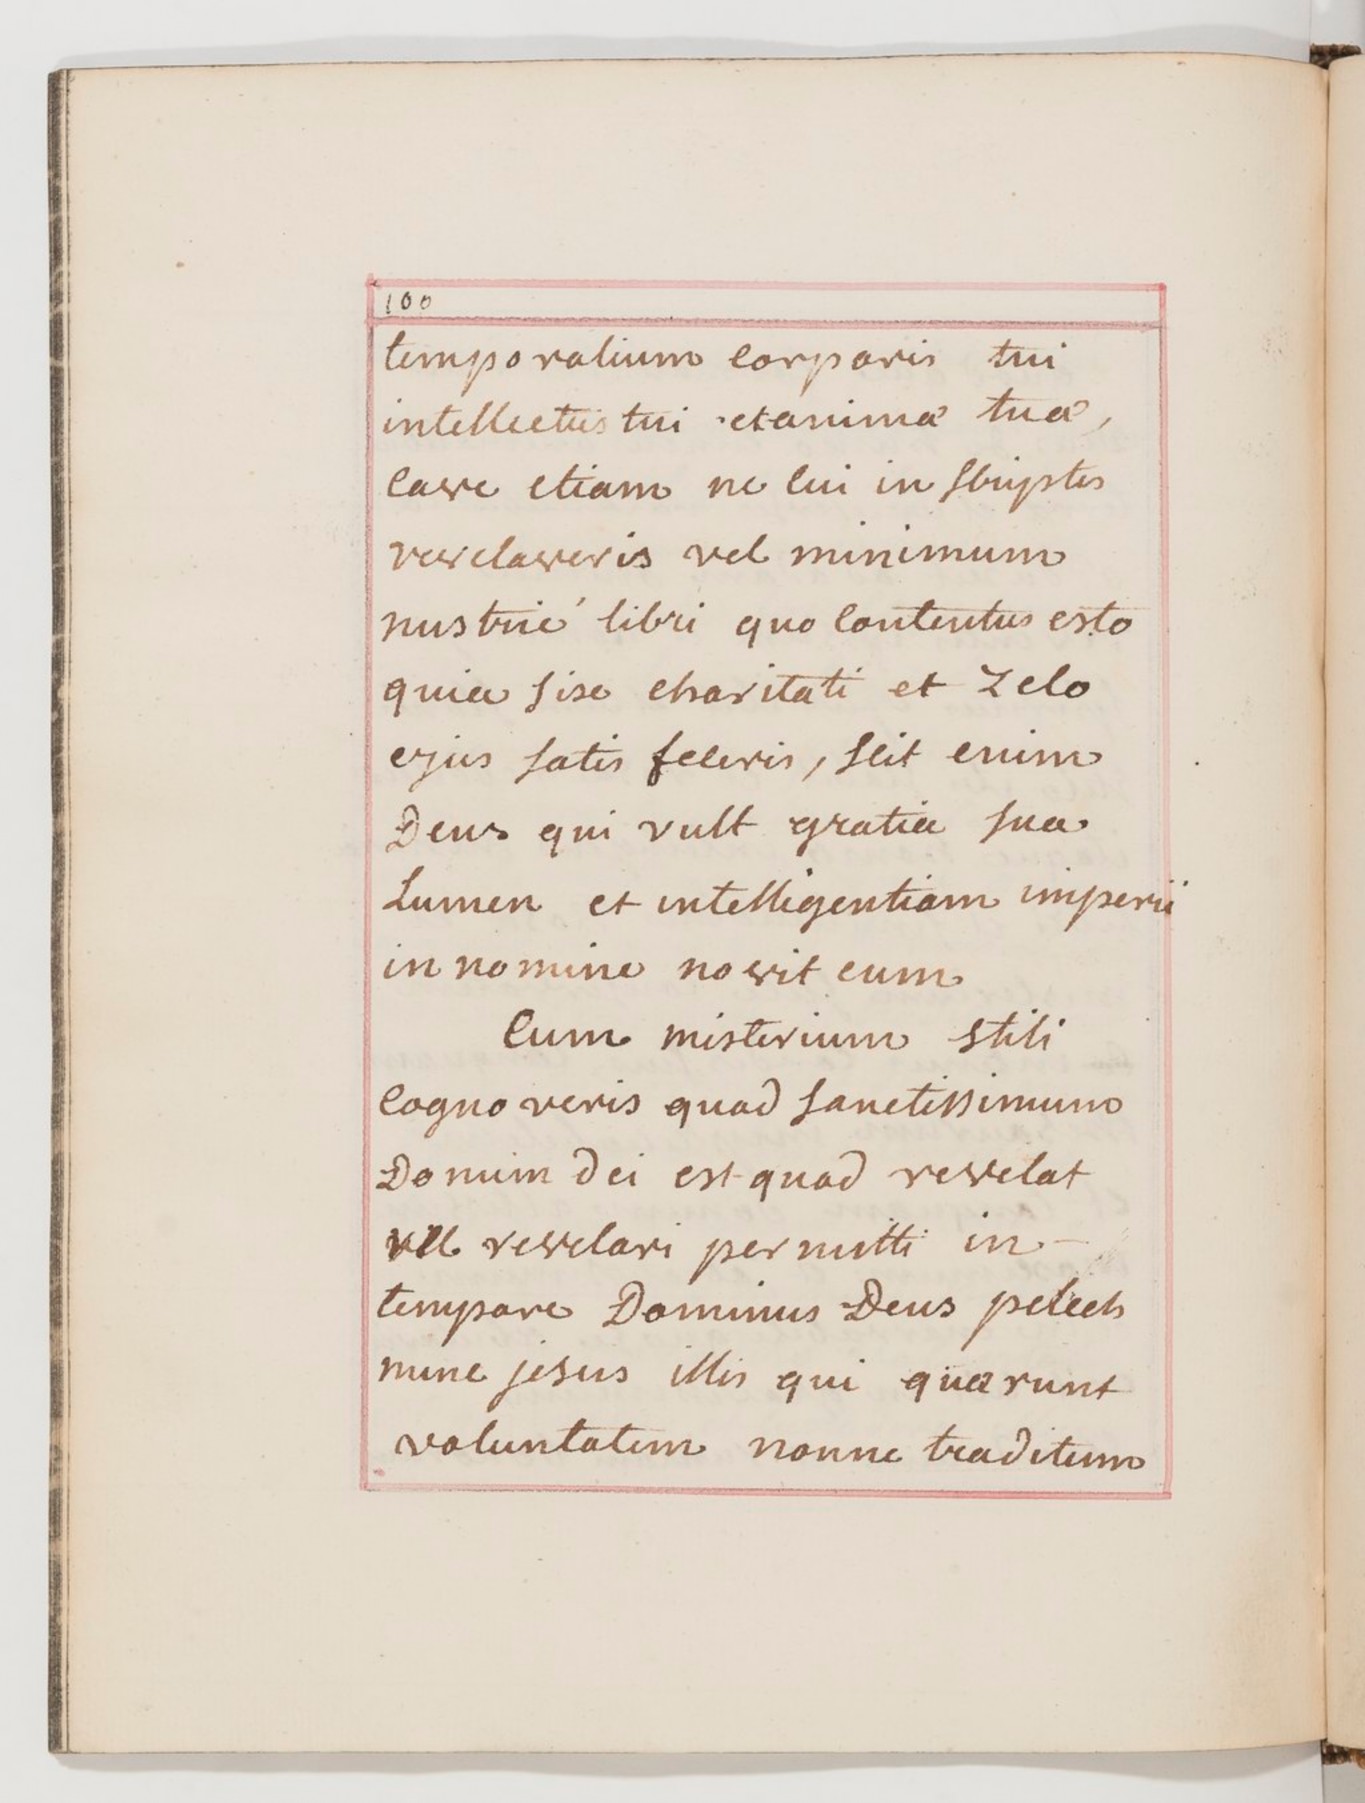 100
temporalium corporis tui
intellectus tui et animæ tuæ,
cave etiam ne cui in scriptis
revelaveris vel minimum
nustrie libri quo contentus esto
quia sise charitati et zelo
ejus satis feceris, scit enim
Deus qui vult gratia sua
Lumen et intelligentiam imperii
in nomine novit eum
Cum misterium stili
cognoveris quod sanctissimum
Donum dei est quod revelat
vel revelari permitti in-
tempore Dominus Deus pelech
nunc jesus illis qui quærunt
voluntatem nonne traditum